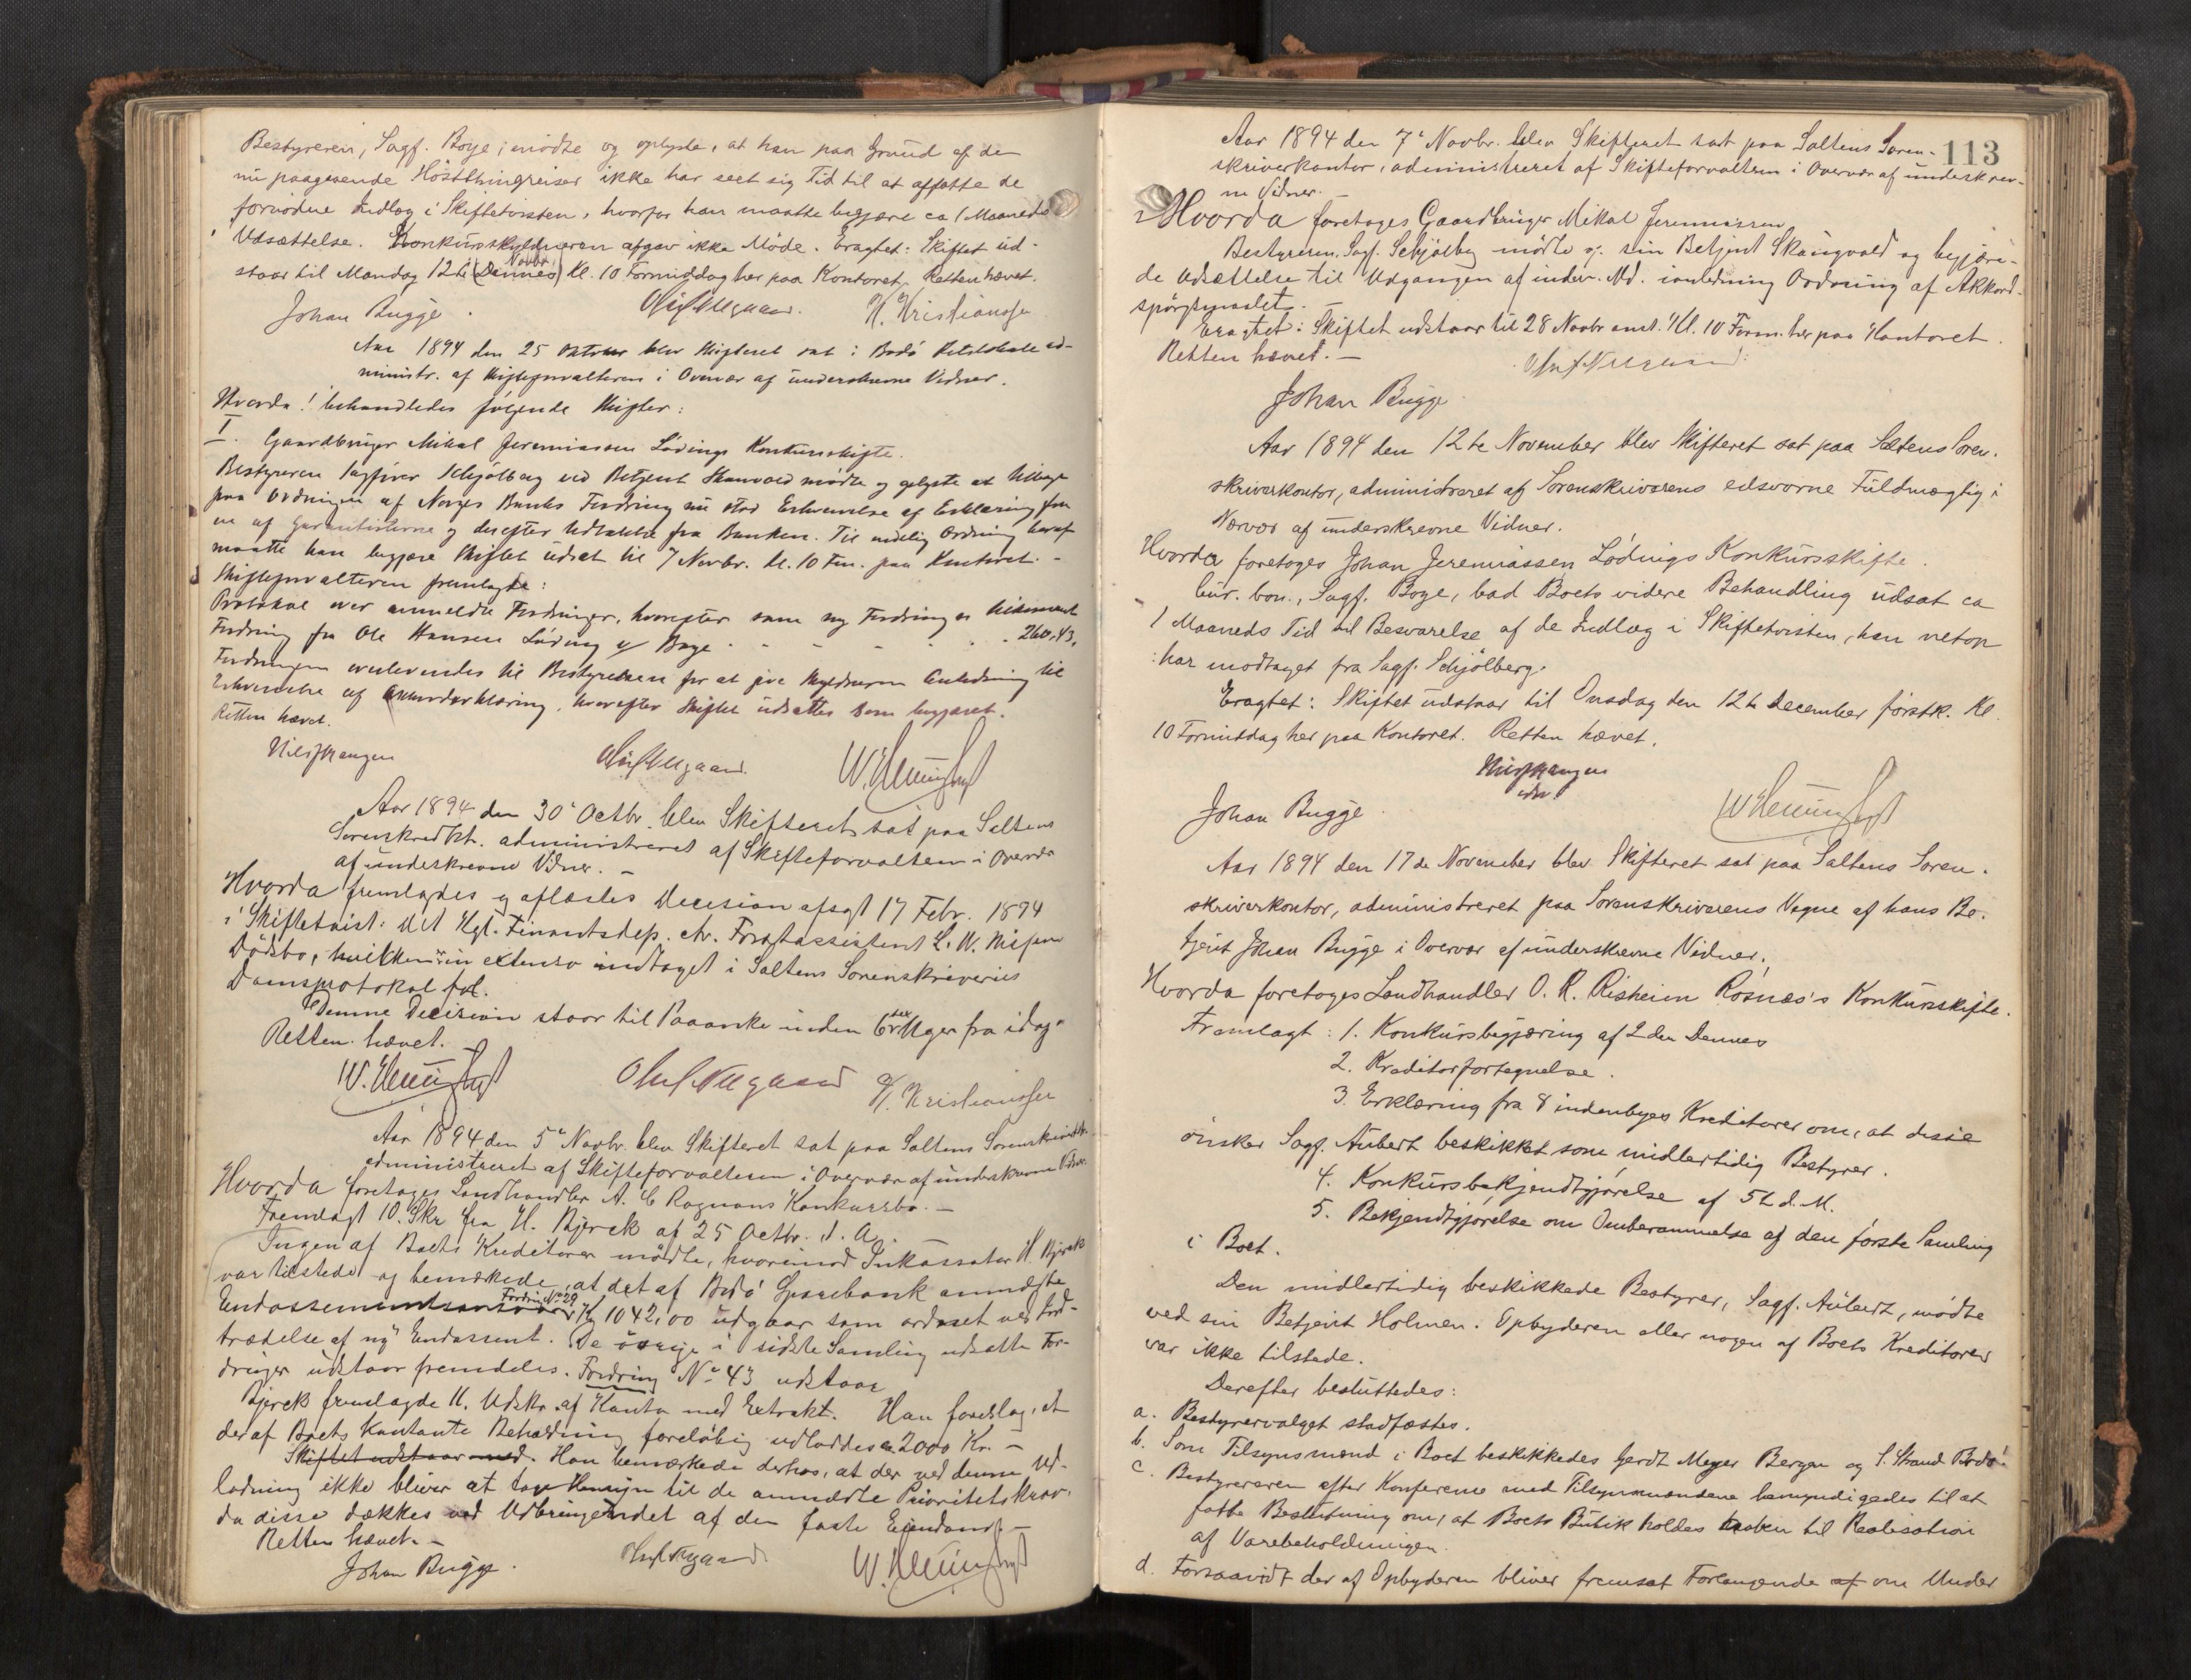 Bestyreren, Sagf. Boye, mødte og oplyste, at han paa Grund af de
nu paagaaende Høstthingreiser ikke har seet sig Tid til at affatte de
fornødne Indlæg i Skiftetvisten, hvorfor han maatte begjære ca 1 Maaneds
Udsættelse. Konkursskyldneren afgav ikke Møde. Eragtet: Skiftet ud-
staar til Mandag 12te (Dennes) Novbr. Kl. 10 Formiddag her paa Kontoret. Retten hævet.
Johan Bugge. Olaf Nygaard. H. Kristiansen
Aar 1894 den 25 Oktober blev Skifteret sat i Bodø Retslokale ad-
ministr. af Skifteforvalteren i Overvær af underskrevne Vidner.
Hvorda! behandledes følgende Skifter:
I. Gaardbruger Mikal Jeremiassen Løvings Konkursskifte.
Bestyreren Sagfører Schjølberg ved Betjent Skaugvold mødte og oplyste at tilbage
paa Ordningen af Norges Banks Fordring nu stod Erhvervelse af Erklæring fra
en af Garantisterne og derefter Udtalelse fra Banken. Til endelig Ordning heraf
maatte han begjære Skiftet udsat til 7 Novbr. Kl. 10 Fm. paa Kontoret. -
Skifteforvalteren fremlagde:
Protokol over anmeldte Fordringer, hvorefter som ny Fordring er tilkommet
Fordring fra Ole Hansen Løding v/ Boye - - - - 260,43.
Fordringen overlevertes til Bestyreren for at give Skyldneren Anledning til
Erhvervelse af Akkorderklæring, hvorefter Skiftet udsattes som begjæret.
Retten hævet.
Olaf Nygaard.
Aar 1894 den 30' Octbr. blev Skifteret sat paa Saltens
Sorenskrvkt. administreret af Skifteforvalteren i Overvær
af underskrevne Vidner. -
Hvorda fremlagdes og aflæstes Decision afsagt 17 Febr. 1894
i Skiftetvist: Det Kgl. Finantsdep. ctr. Forstassistent L. W. Nissens
Dødsbo, hvilken er in extenso indtaget i Saltens Sorenskriveries
Domsprotokol fol.
Denne Decision staar til Paaanke inden 6 sex Uger fra idag.
Retten hævet. -
Olaf Nygaard H. Kristiansen
Aar 1894 den 5' Novbr. blev Skifteret sat paa Saltens Sorenskriverktr.
administreret af Skifteforvalteren i Overvær af underskrevne Vidner.
Hvorda foretoges Landhandler A. C Rognans Konkursbo. -
Fremlagt 10. Skr fra H. Bjerck af 25 Octbr. d. A.
Ingen af Boets Kreditorer mødte, hvorimod Inkassator H Bjerck
var tilstede og bemærkede, at det af Bodø Sparebank anmeldte
Endossementsansvar Fordr. No 29 Kr 1042,00 udgaar som ordnet ved Ind-
trædelse af ny Endossent. De øvrige i sidste Samling udsatte For-
dringer udstaar fremdeles. Fordring No 43 udstaar
Bjerck fremlagde 11. Udskr. af Konto med Extrakt. Han foreslog, at
der af Boets Kontante Beholdning foreløbig udloddes ca 2000 Kr. -
Skiftet udstaar med. Han bemærkede derhos, at der ved denne Ud-
lodning ikke bliver at tage Hensyn til de anmeldte Prioritetskrav,
da disse dækkes ved Udbringendet af den faste Eiendom. -
Retten hævet. -
Johan Bugge. Olaf Nygaard
113
Aar 1894 den 7' Novbr. blev Skifteret sat paa Saltens Soren-
skriverkontor, administreret af Skifteforvalteren i Overvær af underskrev-
ne Vidner. -
Hvorda foretoges Gaardbruger Mikal Jeremiassen
Bestyreren Sagf. Schjølberg mødte v. sin Betjent Skaugvold og begjære-
de Udsættelse til Udgangen af indev. Md. ianledning Ordning af Akkord-
spørgsmaalet. -
Eragtet: Skiftet udstaar til 28 Novbr anst. Kl. 10 Form. her paa Kontoret.
Retten hævet. - Olaf Nygaard.
Johan Bugge
Aar 1894 den 12te November blev Skifteret sat paa Saltens Soren-
skriverkontor, administreret af Sorenskriverens edsvorne Fuldmægtig i
Nærvær af underskrevne Vidner.
Hvorda foretoges Johan Jeremiassen Lødings Konkursskifte.
Cur. bon., Sagf. Boye, bad Boets videre Behandling udsat ca
1 Maaneds Tid til Besvarelse af de Indlæg i Skiftetvisten, han netop
har modtaget fra Sagf. Schjølberg.
Eragtet: Skiftet udstaar til Onsdag den 12te December førstk. Kl.
10 Formiddag her paa Kontoret. Retten hævet.
Johan Bugge
Aar 1894 den 17de November blev Skifteret sat paa Saltens Soren-
skriverkontor, administreret paa Sorenskriverens Vegne af hans Be-
tjent Johan Bugge i Overvær af underskrevne Vidner.
Hvorda foretoges Landhandler O. R. Risheim Rosnæs's Konkursskifte.
Fremlagt: 1. Konkursbegjæring af 2den Dennes
2. Kreditorfortegnelse.
3. Erklæring fra 8 indenbyes Kreditorer om, at disse
ønsker Sagf. Aubert beskikket som midlertidig Bestyrer.
4. Konkursbekjendtgjørelse af 5te d. M.
5. Bekjendtgjørelse om Omberammelse af den første Samling
i Boet.
Den midlertidig beskikkede Bestyrer, Sagf. Aubert, mødte
ved sin Betjent Holmen. Opbyderen eller nogen af Boets Kreditorer
var ikke tilstede.
Derefter besluttedes:
a. Bestyrervalget stadfæstes.
b. Som Tilsynsmænd i Boet beskikkedes Gerdt Meyer Bergen og S. Strand Bodø.
c. Bestyrereren efter Konference med Tilsynsmændene bemyndigedes til at
fatte Beslutning om, at Boets Butik holdes aaben til Realisation
af Varebeholdningen.
d. Forsaavidt der af Opbyderen bliver fremsat Forlangende af om Under